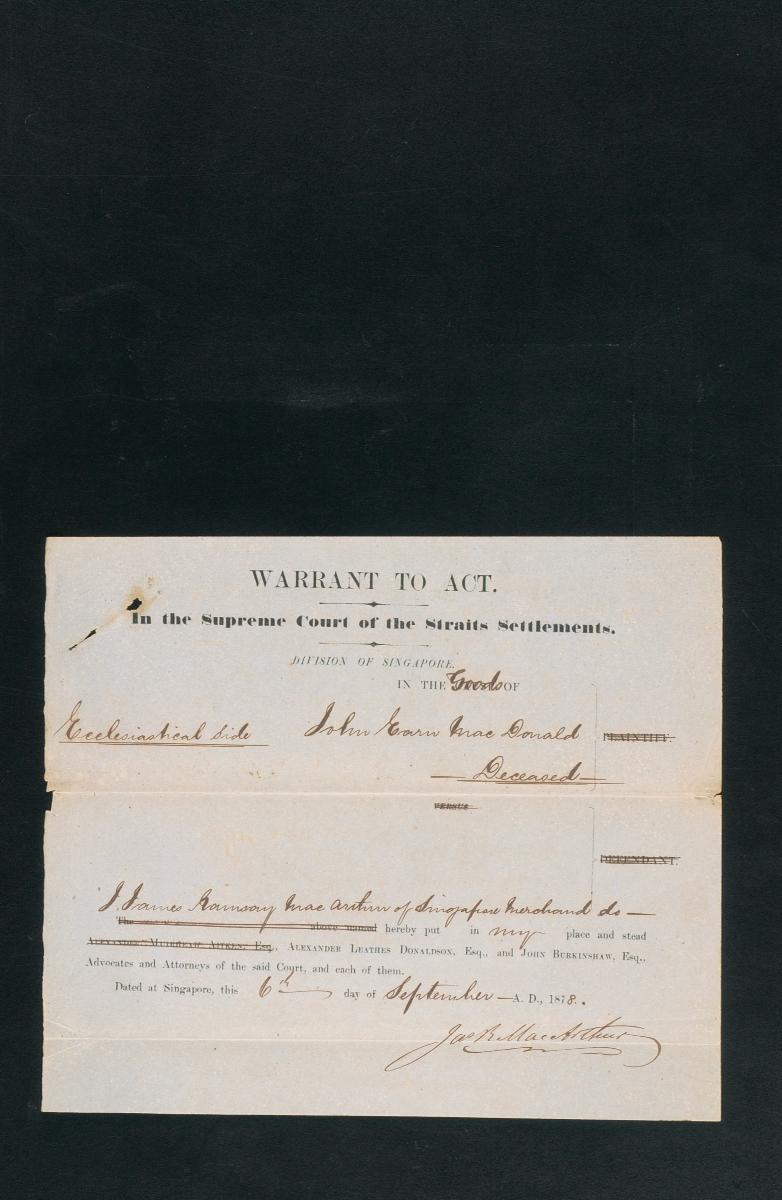 WARRANT TO ACT.
In the Supreme Court of the Straits Settlements.
DIVISION OF SINGAPORE.
IN THE Goods OF
Ecclesiastical Side John Earn Mac Donald PLAINTIFF.
Deceased
VERSUS
DEFENDANT.
I James Ramsay Mac Arthur of Singapore Merchand do
The above named hereby put in my place and stead
ALEXANDER MUIRHEAD AITKEN, Esq., ALEXANDER LEATHES DONALDSON, Esq., and JOHN BURKINSHAW, Esq.,
Advocates and Attorneys of the said Court, and each of them.
Dated at Singapore, this 6th day of September A. D., 1878.
Jas R MacArthur